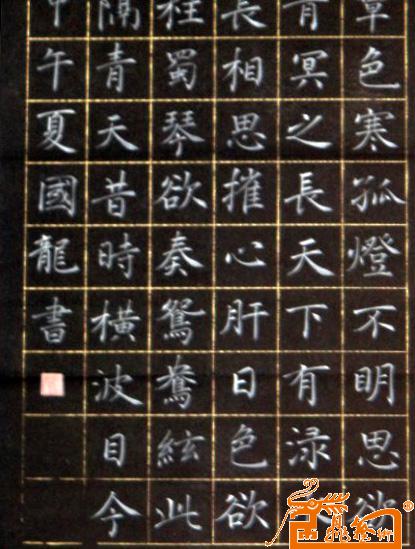 色寒孤燈不明思欲
青冥之長天下有渌
長相思摧心肝日色欲
柱蜀琴欲奏鴛鴦絃此
隔青天昔時橫波目今
午夏國龍書